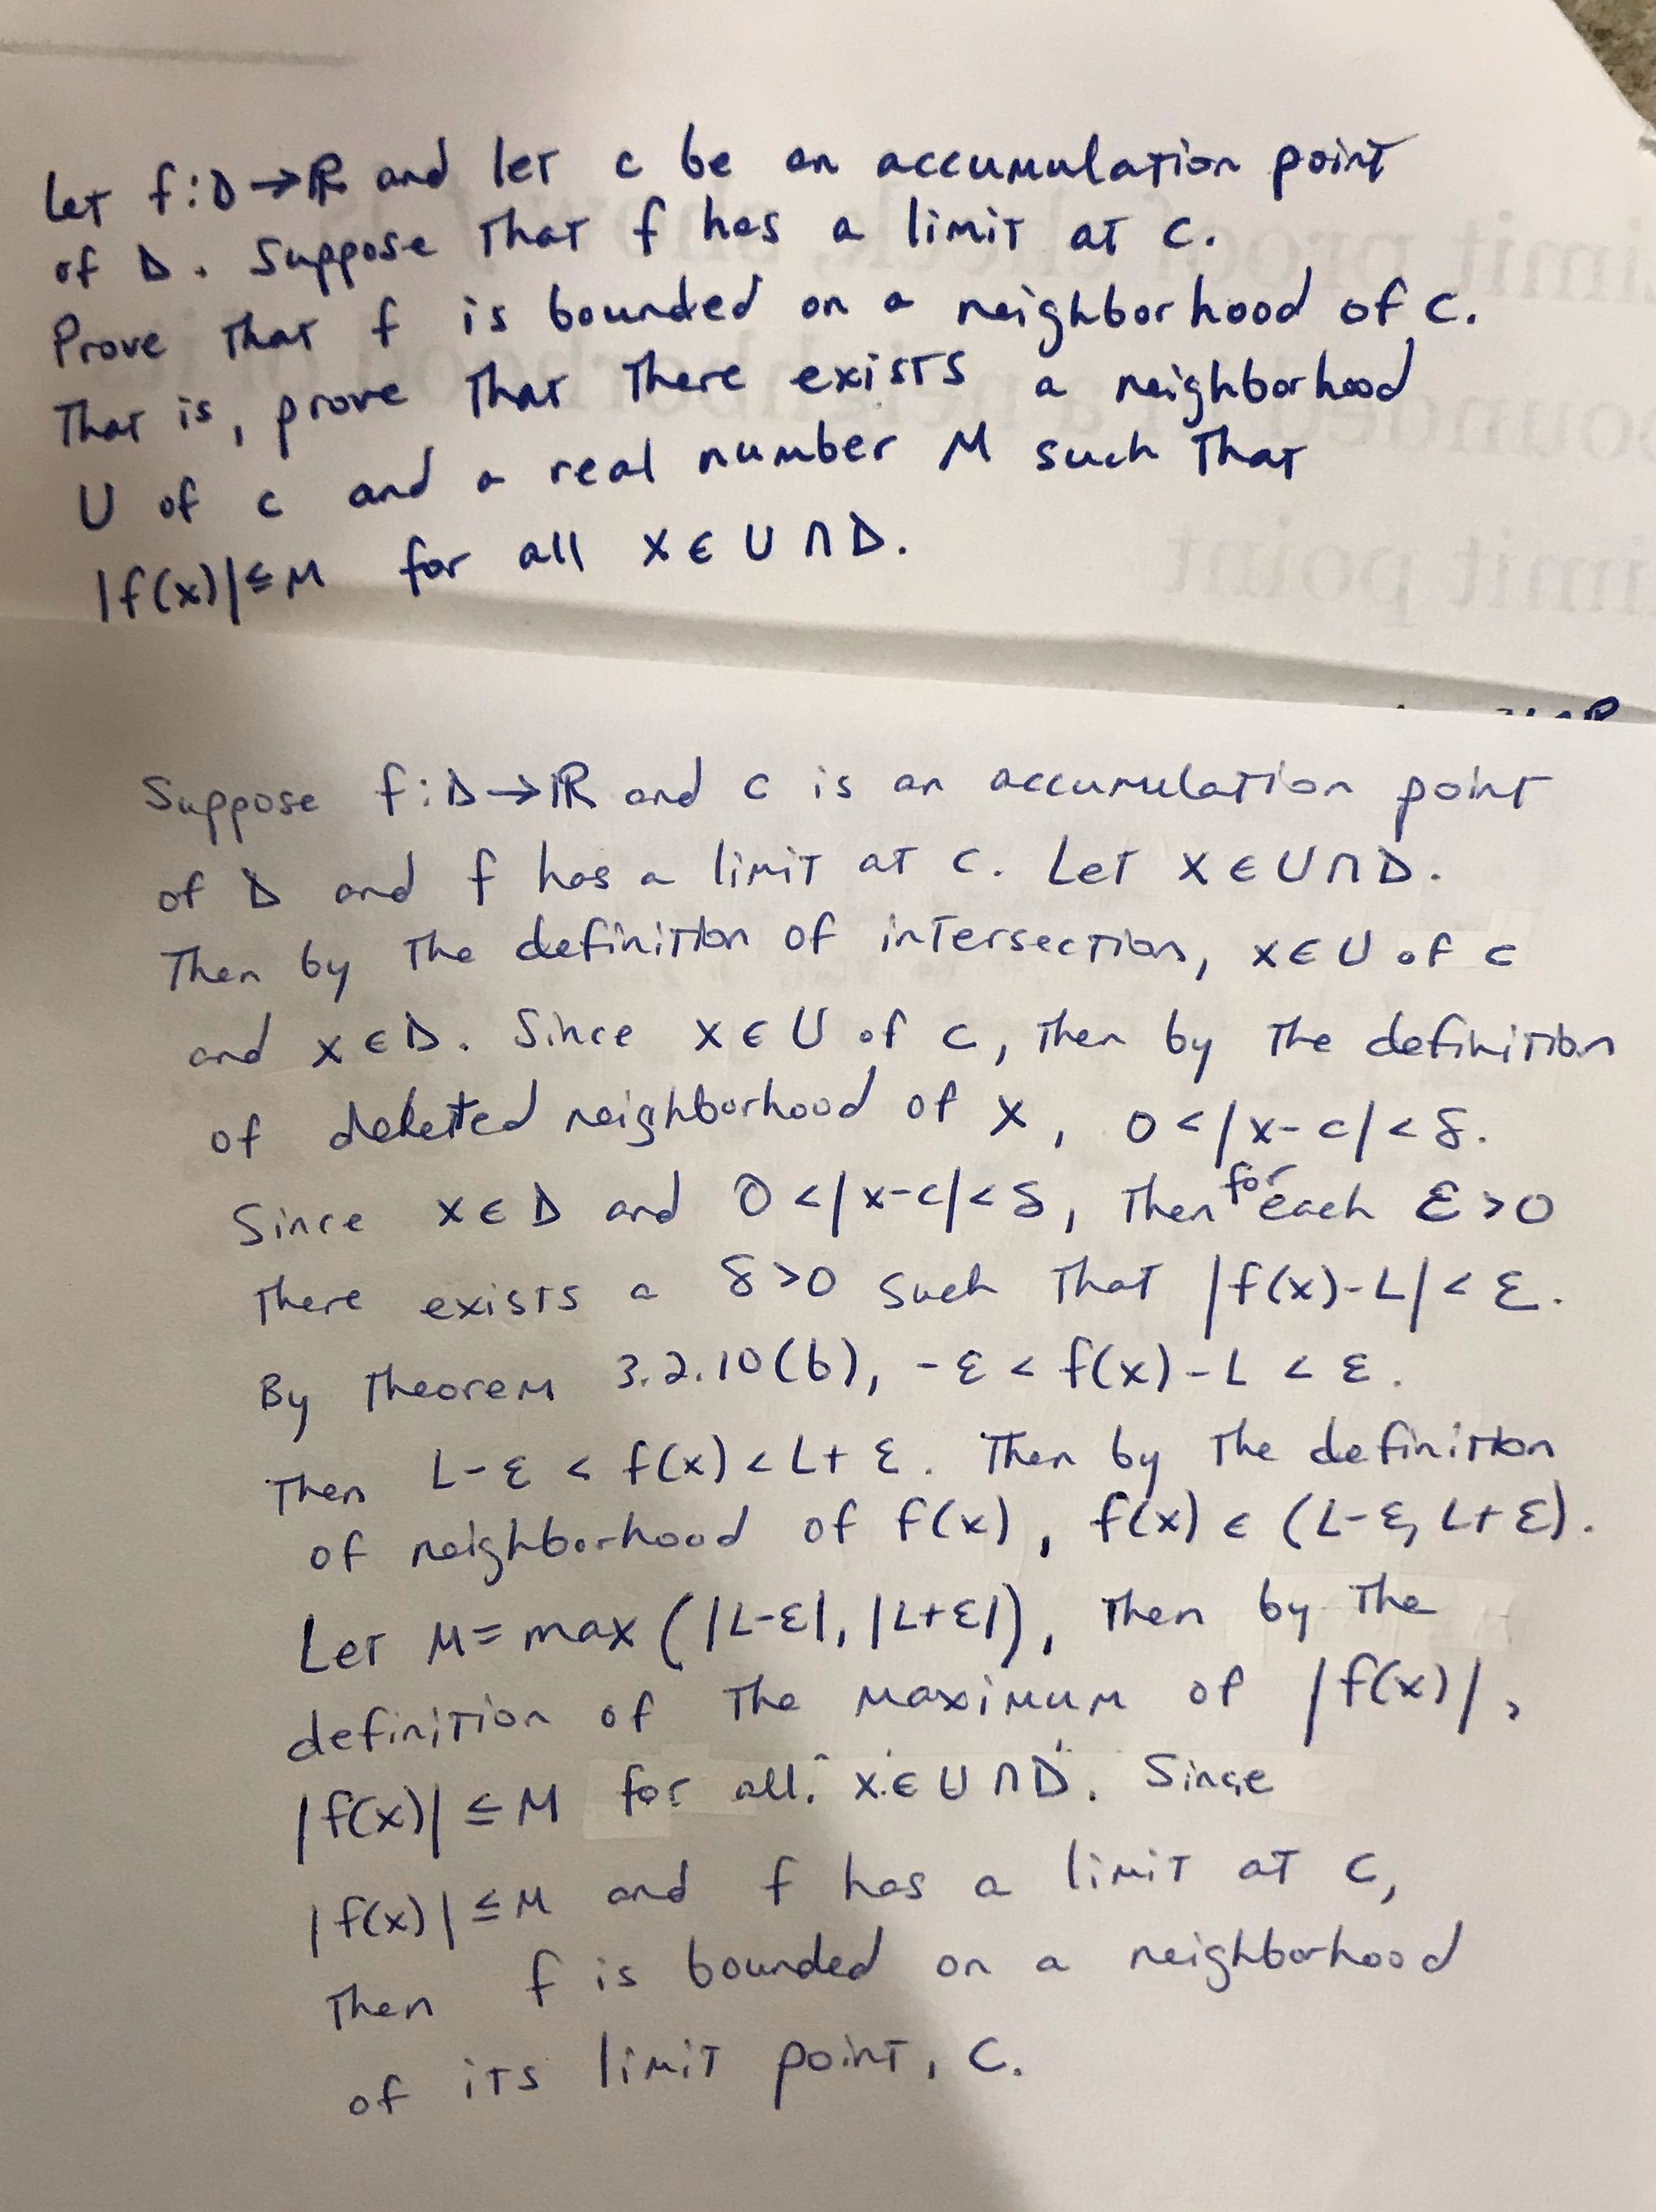 Let f:D→ℝ and let c be an accumulation point
of D. Suppose that f has a limit at c.
Prove that f is bounded on a neighborhood of c.
That is, prove that there exists a neighborhood
U of c and a real number M such that
|f(x)|≤M for all x∈U∩D.
Suppose f:D→ℝ and c is an accumulation point
of D and f has a limit at c. Let x∈U∩D.
Then by the definition of intersection, x∈U of c
and x∈D. Since x∈U of c, then by the definition
of deleted neighborhood of x, 0<|x-c|<δ.
Since x∈D and 0<|x-c|<δ, then for each ε>0
there exists a δ>0 such that |f(x)-L|<ε.
By Theorem 3.2.10(b), -ε<f(x)-L<ε.
Then L-ε<f(x)<L+ε. Then by the definition
of neighborhood of f(x), f(x)∈(L-ε, L+ε).
Let M=max(|L-ε|,|L+ε|), then by the
definition of the maximum of |f(x)|,
|f(x)|≤M for all x∈U∩D. Since
|f(x)|≤M and f has a limit at c,
then f is bounded on a neighborhood
of its limit point, c.